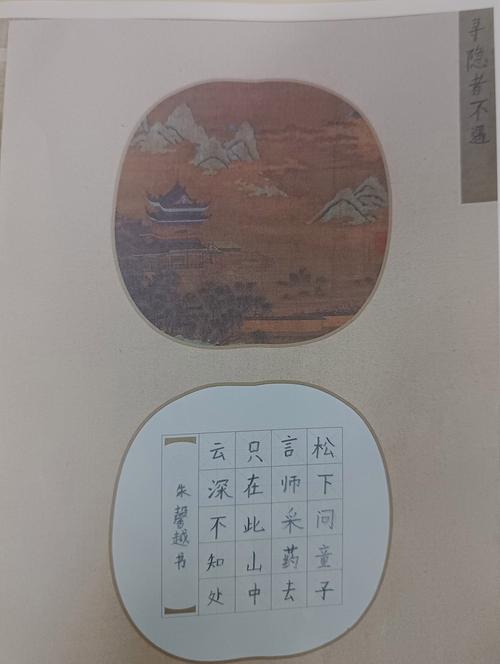 寻隐者不遇
松下问童子
言师采药去
只在此山中
云深不知处
朱馨越书